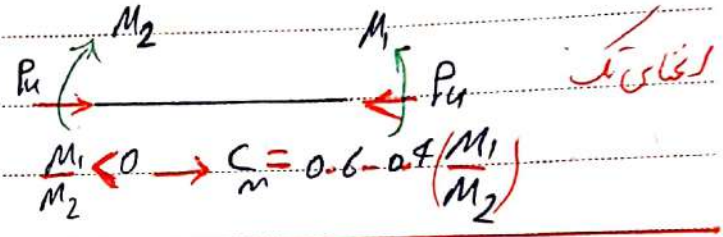 M₂ M₁
Pu Pu انحنای تک
M₁/M₂ < 0 → Cm = 0.6 - 0.4 (M₁/M₂)